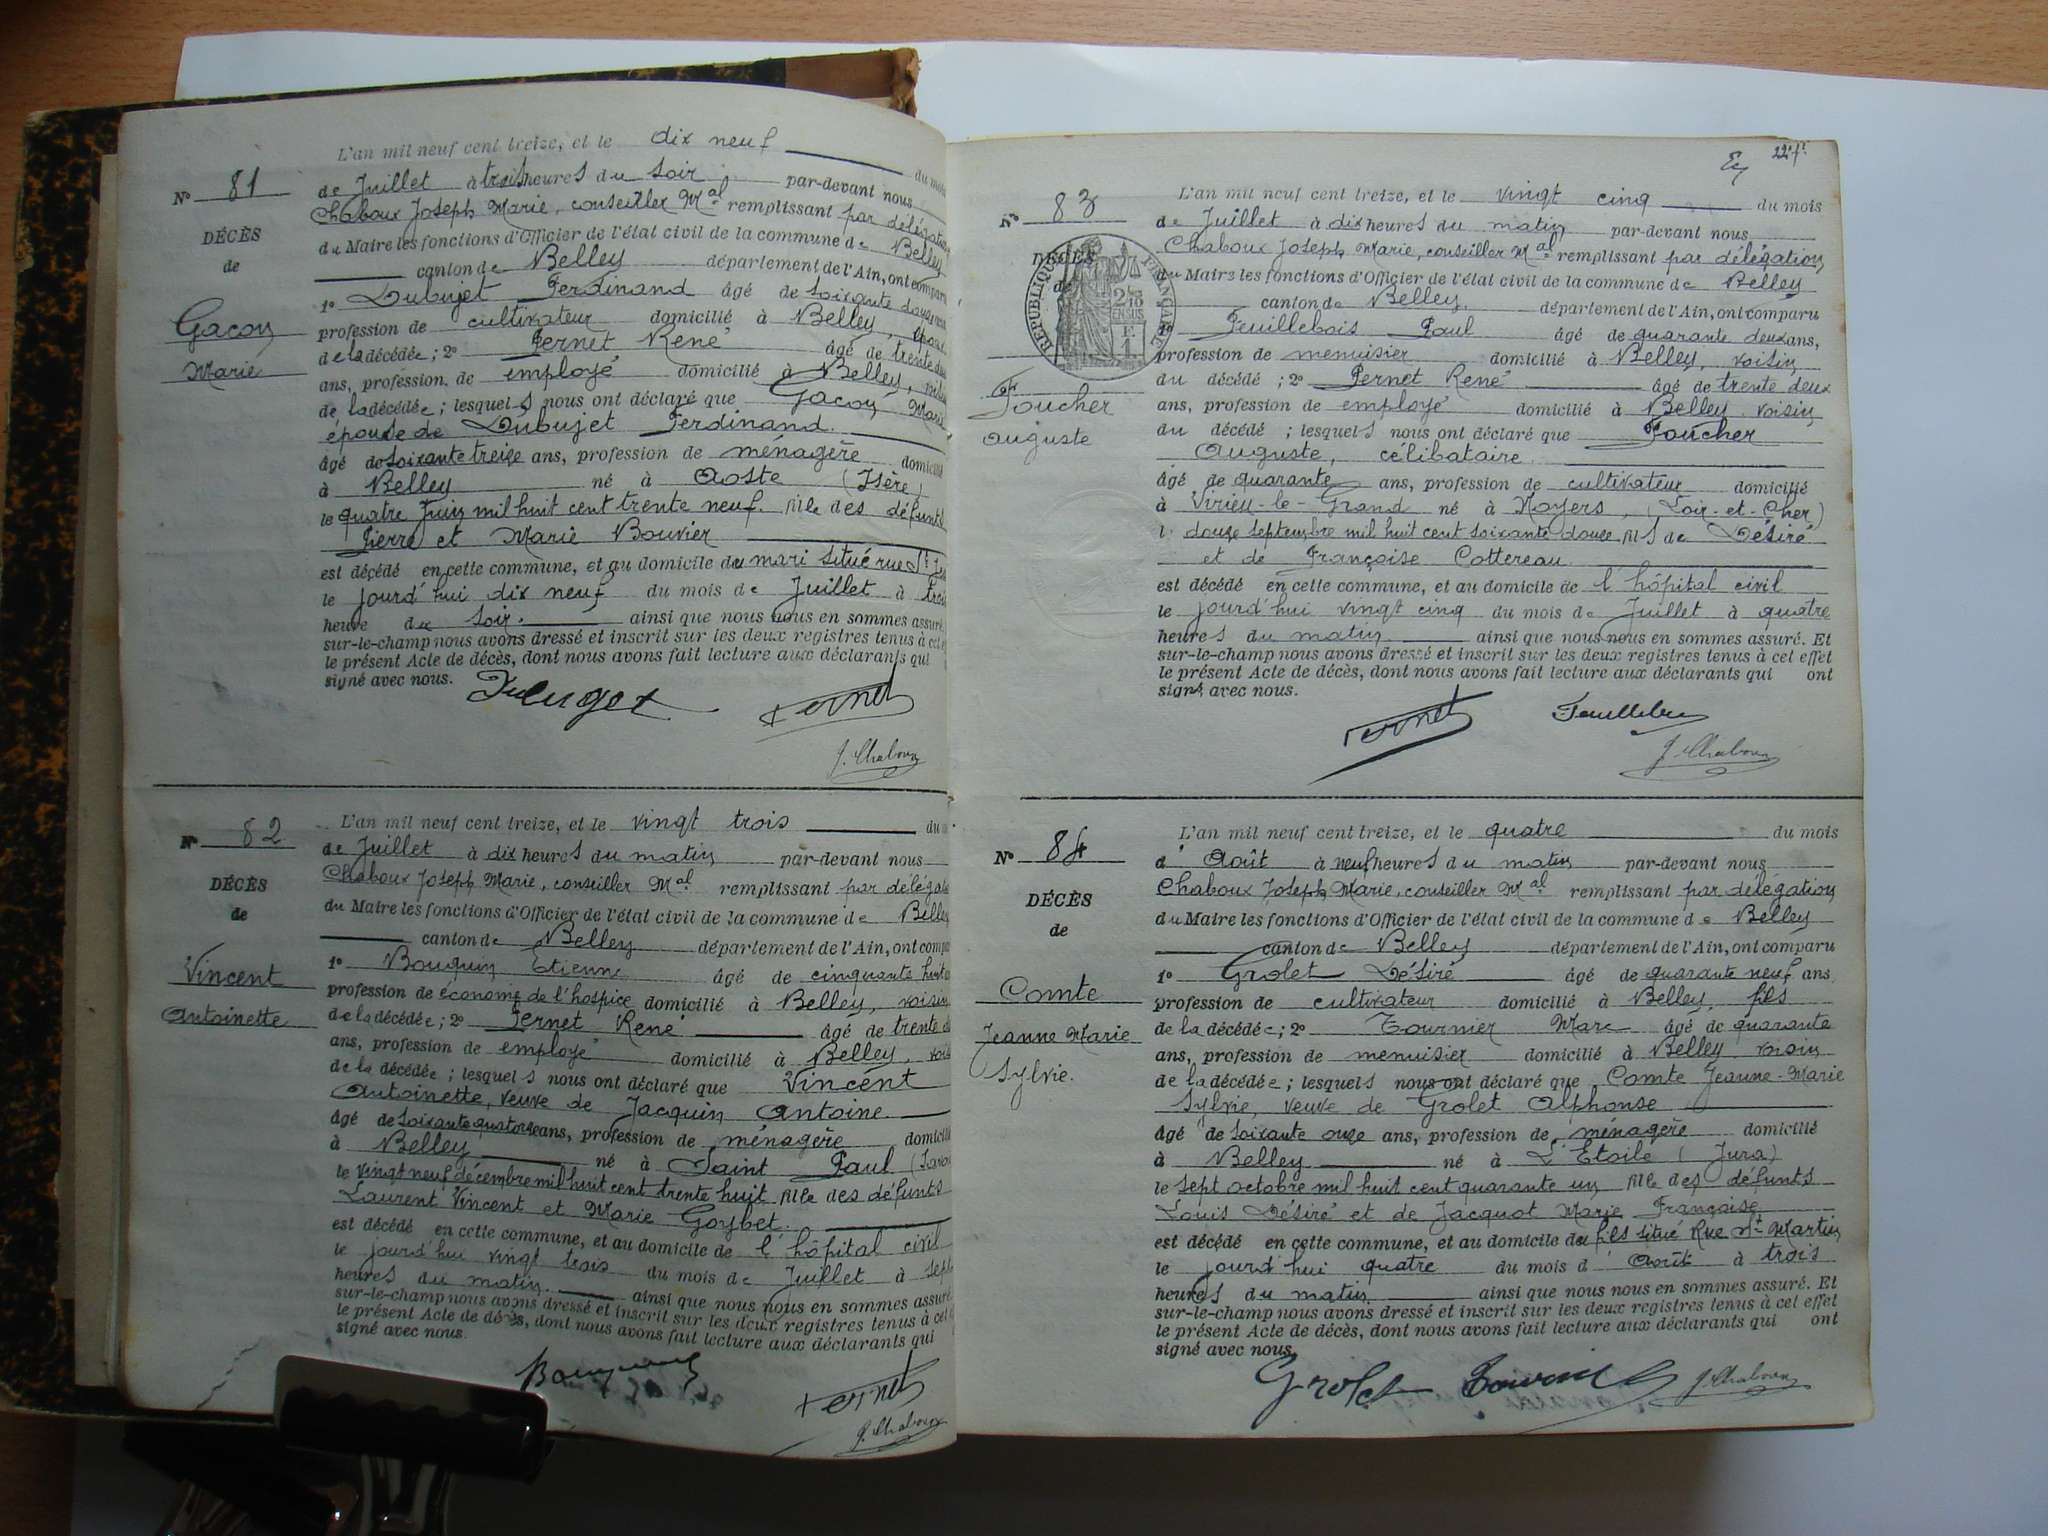 L'an mil neuf cent treize, et le dix neuf du mois
N° 81
de Juillet à trois heures du soir par-devant nous
Chaboux Joseph Marie, conseiller Mal remplissant par délégation
DÉCÈS
du Maire les fonctions d'Officier de l'état civil de la commune de Belley
de
canton de Belley département de l'Ain, ont comparu
1° Dubujet Ferdinand âgé de soixante
Gacon
profession de cultivateur domicilié à Belley, époux
de la décédée; 2° Pernet René âgé de trente deux
Marie
ans, profession de employé domicilié à Belley,
de la décédée; lesquels nous ont déclaré que Gacon Marie
épouse de Dubujet Ferdinand.
âgé de soixante treize ans, profession de ménagère domicilié
à Belley né à Aoste (Isère)
le quatre Juin mil huit cent trente neuf. fille des défunts
Pierre et Marie Bouvier
est décédé en cette commune, et au domicile du mari situé rue St
le jourd'hui dix neuf du mois de Juillet à trois
heure du soir. ainsi que nous nous en sommes assuré.
sur-le-champ nous avons dressé et inscrit sur les deux registres tenus à cet
le présent Acte de décès, dont nous avons fait lecture aux déclarants qui
signé avec nous.
Pernet
J. Chaboux
L'an mil neuf cent treize, et le vingt trois du
N° 82
de Juillet à dix heures du matin par-devant nous
Chaboux Joseph Marie, conseiller Mal remplissant par délégation
DÉCÈS
du Maire les fonctions d'Officier de l'état civil de la commune de Belley
de
canton de Belley département de l'Ain, ont comparu
1° Bouquin Etienne âgé de cinquante huit
Vincent
profession de économe de l'hospice domicilié à Belley, voisin
Antoinette
de la décédée; 2° Pernet René âgé de trente
ans, profession de employé domicilié à Belley, voisin
de la décédée; lesquels nous ont déclaré que Vincent
Antoinette, veuve de Jacquin Antoine.
âgé de soixante quatorze ans, profession de ménagère domicilié
à Belley né à Saint Paul (Savoie
le vingt neuf décembre mil huit cent trente huit fille des défunts
Laurent Vincent et Marie Goybet.
est décédé en cette commune, et au domicile de l'hôpital civil
le jourd'hui vingt trois du mois de Juillet à sept
heures du matin. ainsi que nous nous en sommes assuré.
sur-le-champ nous avons dressé et inscrit sur les deux registres tenus à cet
le présent Acte de décès, dont nous avons fait lecture aux déclarants qui
signé avec nous.
Pernet
J. Chaboux
22 f.
L'an mil neuf cent treize, et le vingt cinq du mois
N° 83
de Juillet à dix heures du matin par-devant nous
Chaboux Joseph Marie, conseiller Mal remplissant par délégation
DÉCÈS
du Maire les fonctions d'Officier de l'état civil de la commune de Belley
de
RÉPUBLIQUE FRANÇAISE
canton de Belley département de l'Ain, ont comparu
1° Feuillebois Paul âgé de quarante deux ans,
profession de menuisier domicilié à Belley, voisin
du décédé; 2° Pernet René âgé de trente deux
Foucher
ans, profession de employé domicilié à Belley voisin
Auguste
du décédé; lesquels nous ont déclaré que Foucher
Auguste, célibataire.
âgé de quarante ans, profession de cultivateur domicilié
à Virieu-le-Grand né à Noyers, (Loir-et-Cher)
le douze septembre mil huit cent soixante douze fils de Désiré
et de Françoise Cottereau
est décédé en cette commune, et au domicile de l'hôpital civil
le jourd'hui vingt cinq du mois de Juillet à quatre
heures du matin. ainsi que nous nous en sommes assuré. Et
sur-le-champ nous avons dressé et inscrit sur les deux registres tenus à cet effet
le présent Acte de décès, dont nous avons fait lecture aux déclarants qui ont
signé avec nous.
Pernet Feuillebois
J. Chaboux
L'an mil neuf cent treize, et le quatre du mois
N° 84
d'Août à neuf heures du matin par-devant nous
Chaboux Joseph Marie, conseiller Mal remplissant par délégation
DÉCÈS
du Maire les fonctions d'Officier de l'état civil de la commune de Belley
de
canton de Belley département de l'Ain, ont comparu
1° Grolet Désiré âgé de quarante neuf ans
Comte
profession de cultivateur domicilié à Belley, fils
Jeanne Marie
de la décédée; 2° Tournier Marc âgé de quarante
ans, profession de menuisier domicilié à Belley voisin
Sylvie.
de la décédée; lesquels nous ont déclaré que Comte Jeanne-Marie
Sylvie, veuve de Grolet Alphonse
âgé de soixante onze ans, profession de ménagère domicilié
à Belley né à L'Etoile (Jura)
le sept octobre mil huit cent quarante un fille des défunts
Louis Désiré et de Jacquot Marie Françoise
est décédé en cette commune, et au domicile du fils situé Rue St Martin
le jourd'hui quatre du mois d'Août à trois
heures du matin ainsi que nous nous en sommes assuré. Et
sur-le-champ nous avons dressé et inscrit sur les deux registres tenus à cet effet
le présent Acte de décès, dont nous avons fait lecture aux déclarants qui ont
signé avec nous.
Grolet Tournier J. Chaboux